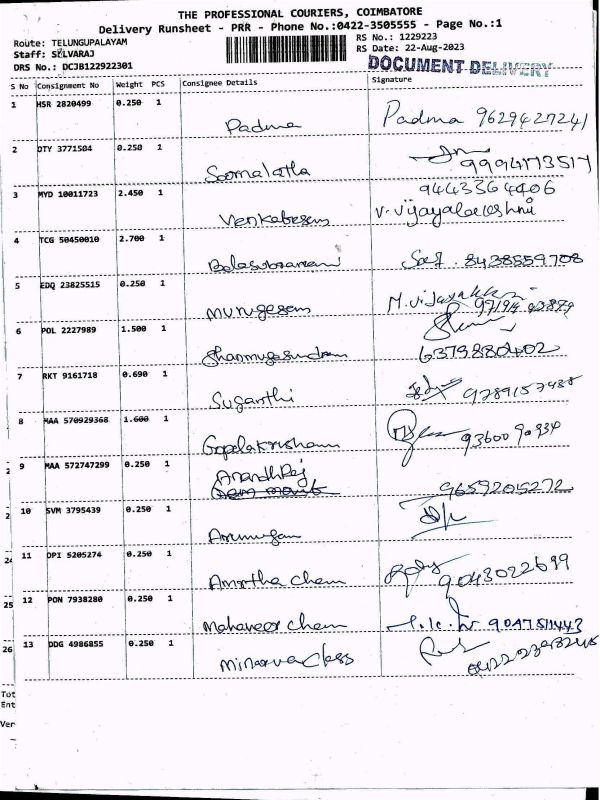 THE PROFESSIONAL COURIERS, COIMBATORE
Delivery Runsheet - PRR - Phone No.:0422-3505555 - Page No.:1
Route: TELUNGUPALAYAM RS No.: 1229223
Staff: SELVARAJ RS Date: 22-Aug-2023
DRS No.: DCJB122922301 DOCUMENT DELIVERY
S No Consignment No Weight PCS Consignee Details Signature
1 HSR 2820499 0.250 1
Padma Padma 9629427241
2 DTY 3771504 0.250 1
9994773517
3 MYD 10011723 2.450 1 9443364406
Venkatesan V. Vijayalakshmi
4 TCG 50450010 2.700 1
8438559708
5 EDQ 23825515 0.250 1
Murugesan M. Vijayakkani
6 POL 2227989 1.500 1
Shanmugasundram 6379880402
7 RKT 9161718 0.690 1
Suganthi 9789157488
8 MAA 570929368 1.600 1
Gopalakrishann 9360090934
2 9 MAA 572747299 0.250 1
AnandhRaj
9659205272
2 10 SVM 3795439 0.250 1
Arumugam
24 11 DPI 5205274 0.250 1
Amrtha Cham 9043022699
25 12 PON 7938280 0.250 1
Mahaveer Cham 9047511443
26 13 DDG 4986855 0.250 1
Minerva Class
Tot
Ent
Ver